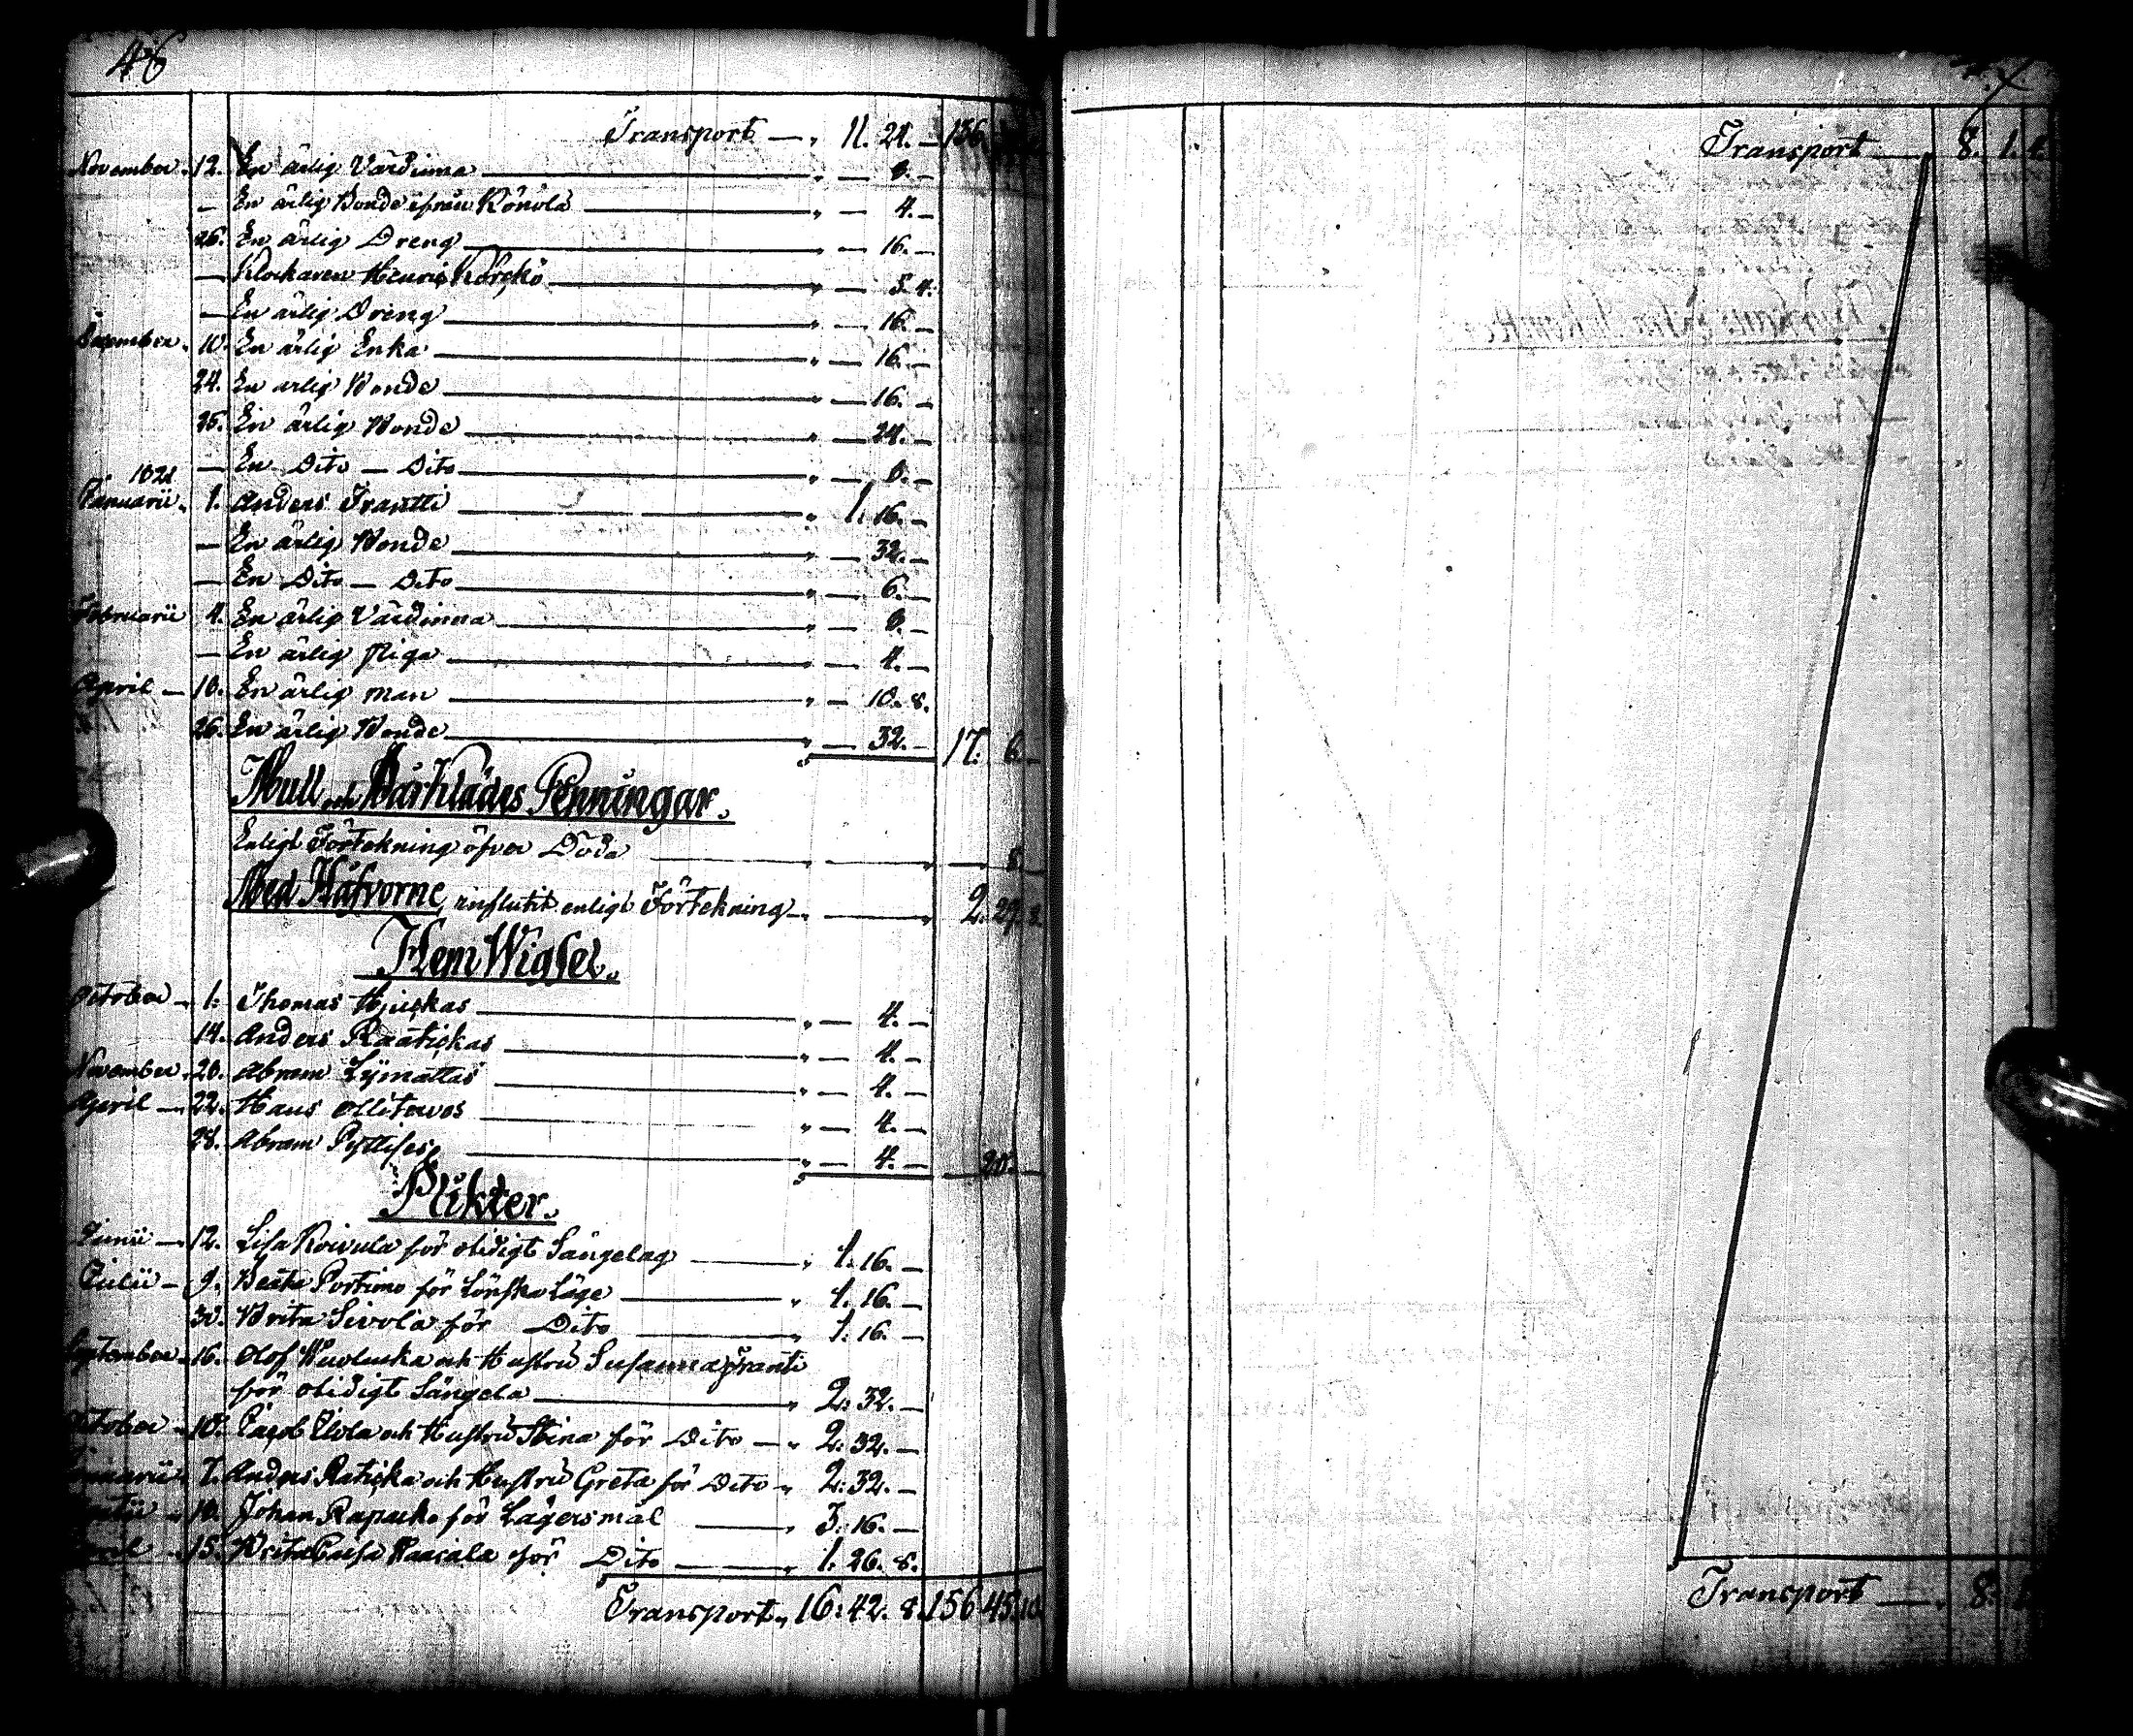 46
Transport — 11. 24. — 136.
November. 12. En ärlig Värdinna — 8. —
— En ärlig Bonde ifrån Könölä — 4. —
26. En ärlig Dreng — 16. —
— Klockaren Henric Körckö — 5. 4.
— En ärlig Dreng — 16. —
December. 10. En ärlig Enka — 16. —
24. En ärlig Bonde — 16. —
25. En ärlig Bonde — 24. —
— En Dito — Dito — 8. —
1821
Januarii. 1. Anders Frantti — 1. 16. —
— En ärlig Bonde — 32. —
— En Dito — Dito — 6. —
Februarii 4. En ärlig Värdinna — 8. —
— En ärlig Piga — 4. —
April — 10. En ärlig man — 10. 8.
26. En ärlig Bonde — 32. — 17. 6. —
Mull och Bårklädes Penningar.
Enligt Förtekning öfver Döda — 8. —
Med Håfvorne, influtit enligt Förtekning — 2. 29.
Hem Wigsel.
October — 1. Thomas — 4. —
14. Anders Raatickas — 4. —
November. 20. Abram — 4. —
April — 22. Hans Ollitervos — 4. —
28. Abram — 4. — 20. —
Plikter.
Junii — 12. Lisa Koivula för otidigt Sängelag — 1. 16. —
Julii — 9. Beata Portimo för Lönska Läge — 1. 16. —
30. Brita Sivola för Dito — 1. 16. —
September — 16. Olof och Hustru Susanna Franti
för otidigt Sängela — 2. 32. —
October — 10. Jacob och Hustru Stina för Dito — 2. 32. —
Januarii 7. Anders Raticka och Hustru Greta för Dito — 2. 32. —
10. Johan för Lägersmål — 3. 16. —
April 15. Brita Caisa för Dito — 1. 26. 8.
Transport. 16: 42. 8. 156. 45. 10.
Transport — 8. 1.
Transport — 8.